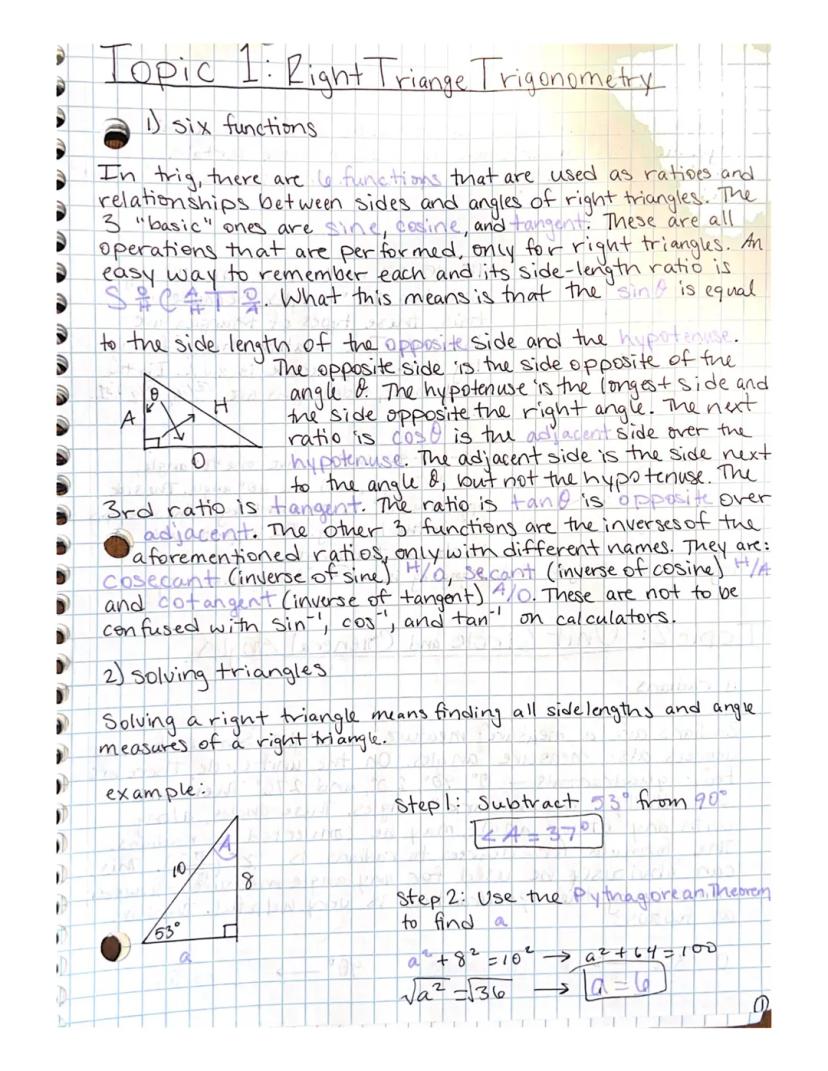 Topic 1: Right Triange Trigonometry
1) six functions
In trig, there are 6 functions that are used as ratioes and
relationships between sides and angles of right triangles. The
3 "basic" ones are sine, cosine, and tangent. These are all
operations that are performed, only for right triangles. An
easy way to remember each and its side-length ratio is
S O/H C A/H T O/A. What this means is that the sin θ is equal
to the side length of the opposite side and the hypotenuse.
The opposite side is the side opposite of the
angle θ. The hypotenuse is the longest side and
the side opposite the right angle. The next
ratio is cos θ is the adjacent side over the
hypotenuse. The adjacent side is the side next
to the angle θ, but not the hypotenuse. The
θ
A
H
O
3rd ratio is tangent. The ratio is tan θ is opposite over
adjacent. The other 3 functions are the inverses of the
aforementioned ratios, only with different names. They are:
cosecant (inverse of sine) H/O, secant (inverse of cosine) H/A
and cotangent (inverse of tangent) A/O. These are not to be
confused with sin⁻¹, cos⁻¹, and tan⁻¹ on calculators.
2) solving triangles
Solving a right triangle means finding all sidelengths and angle
measures of a right triangle.
example:
A
10
8
53°
a
Step 1: Subtract 53° from 90°
∠A = 37°
Step 2: Use the Pythagorean Theorem
to find a
a² + 8² = 10² → a² + 64 = 100
√a² = √36 → a = 6
1